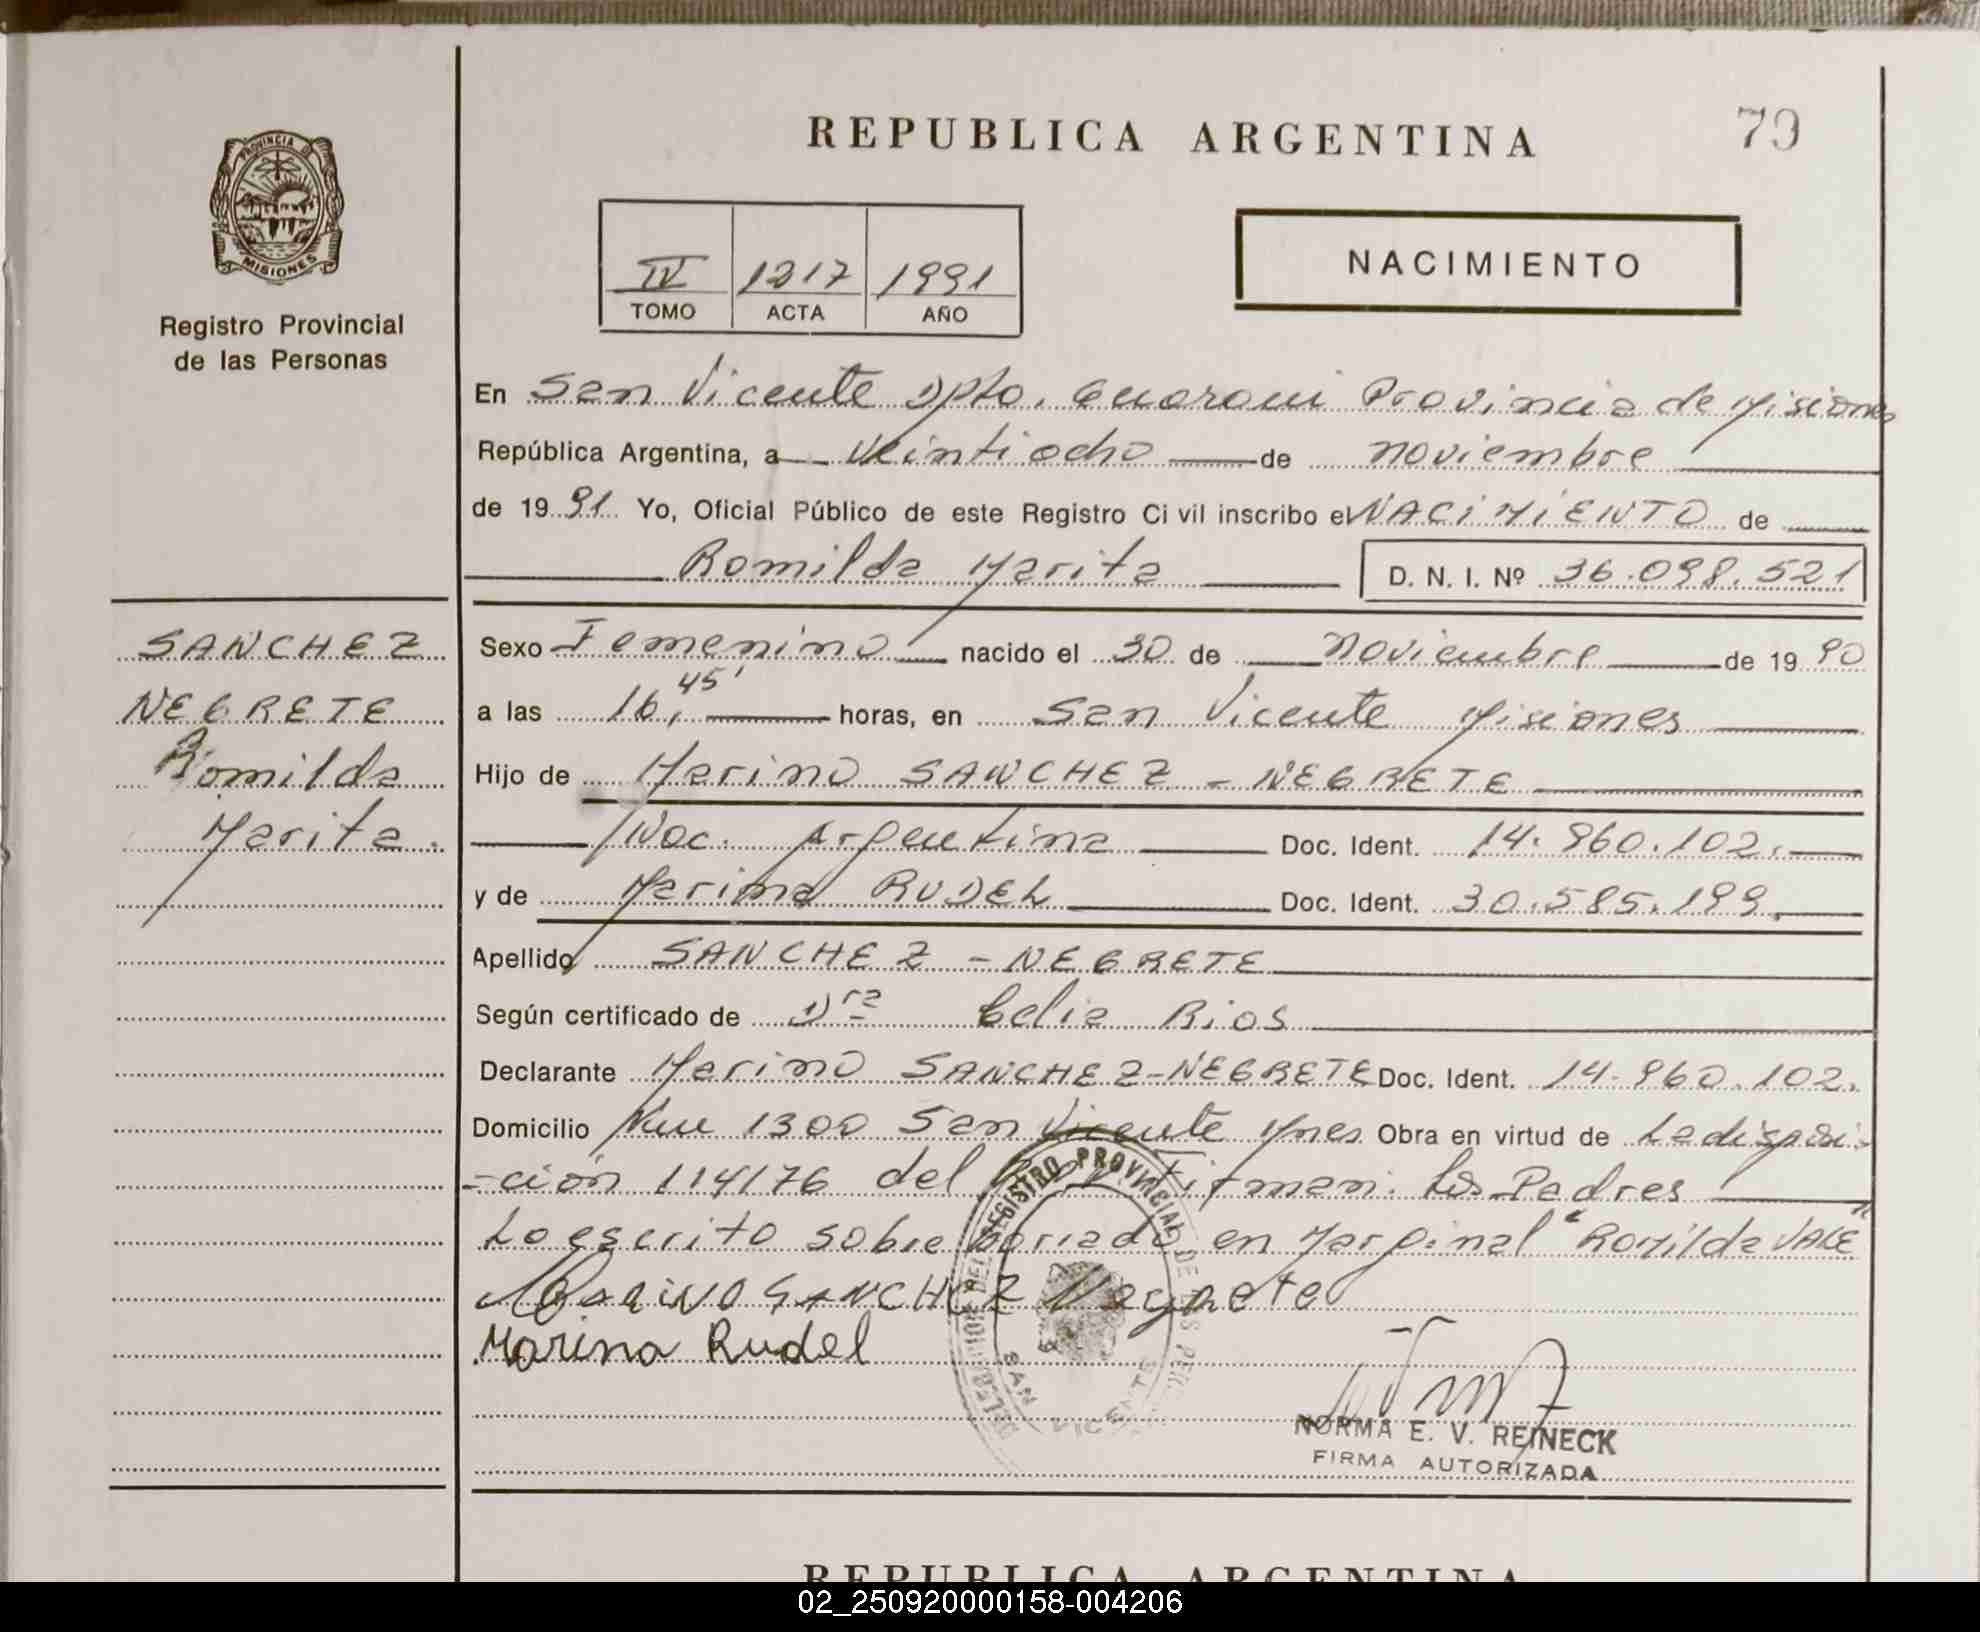 REPUBLICA ARGENTINA
79
PROVINCIA DE
MISIONES
Registro Provincial
de las Personas
IV 1217 1991
TOMO ACTA AÑO
NACIMIENTO
En San Vicente Dpto. Guarani Provincia de Misiones
República Argentina, a Veintiocho de noviembre
de 1991 Yo, Oficial Público de este Registro Civil inscribo el NACIMIENTO de
Romilda Marita D. N. I. Nº 36.098.521
SANCHEZ
NEGRETE
Romilda
Marita.
Sexo Femenino nacido el 30 de Noviembre de 1990
a las 16,45' horas, en San Vicente Misiones
Hijo de Marino SANCHEZ - NEGRETE
Nac. Argentina Doc. Ident. 14.960.102.
y de Marina RUDEL Doc. Ident. 30.585.199.
Apellido SANCHEZ - NEGRETE
Según certificado de Dra Celia Rios
Declarante Marino SANCHEZ-NEGRETE Doc. Ident. 14.960.102.
Domicilio Km 1300 San Vicente Mnes Obra en virtud de La disposi-
-ción 114/76 del Los Padres
Lo escrito sobre borrado en Marginal "Romilda" VALE
Marino SANCHEZ Negrete
Marina Rudel
REGISTRO PROVINCIAL DE LAS PER
SAN VICENTE
NORMA E. V. REINECK
FIRMA AUTORIZADA
REPUBLICA ARGENTINA
02_250920000158-004206